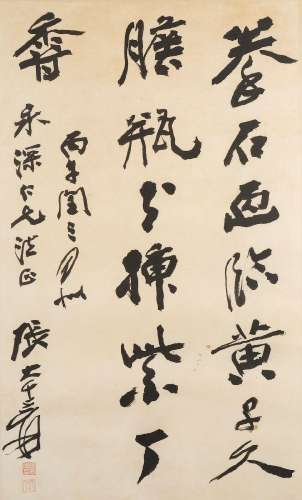 拳石画临黄子久
膽瓶插紫丁
香
丙午閏三月
永深仁兄法正
張大千爰